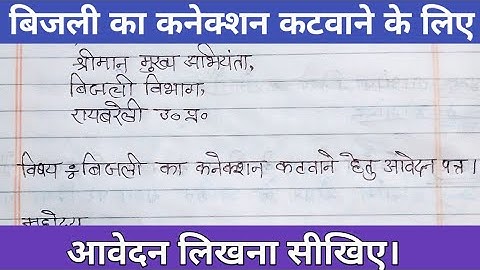 बिजली का कनेक्शन कटवाने के लिए
श्रीमान मुख्य अभियंता,
बिजली विभाग,
रायबरेली उ०प्र०
विषय ःबिजली का कनेक्शन कटवाने हेतु आवेदन पत्र।
महोदय
आवेदन लिखना सीखिए।